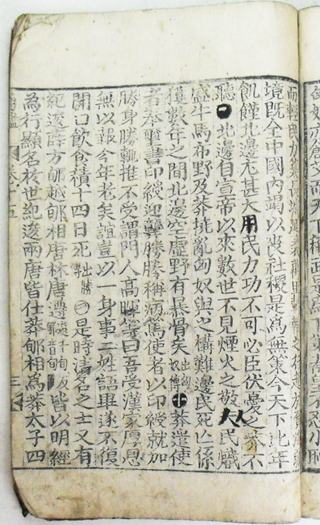 境旣全中國內竭以喪社稷是爲無策今天下比年
飢饉北邊尤甚大用民力功不可必臣伏憂之莽不
聽 北邊自宣帝以來數世不見煙火之警人民熾
盛牛馬布野及莽撓亂匈奴與之構難邊民死亡係
獲數年之間北邊空虛野有暴骨矣出匈奴傳 十 莽遣使
者奉璽書印綬迎龔勝勝稱病篤使者以印綬就加
勝身勝輒推不受謂門人高暉等曰吾受漢家厚恩
無以報今年老矣誼豈以一身事二姓語畢遂不復
開口飮食積十四日死出勝傳 ○是時淸名之士又有
紀逡薛方郇越郇相唐林唐遵 皆以明經
爲行顯名於世紀逡兩唐皆仕莽郇相爲莽太子四